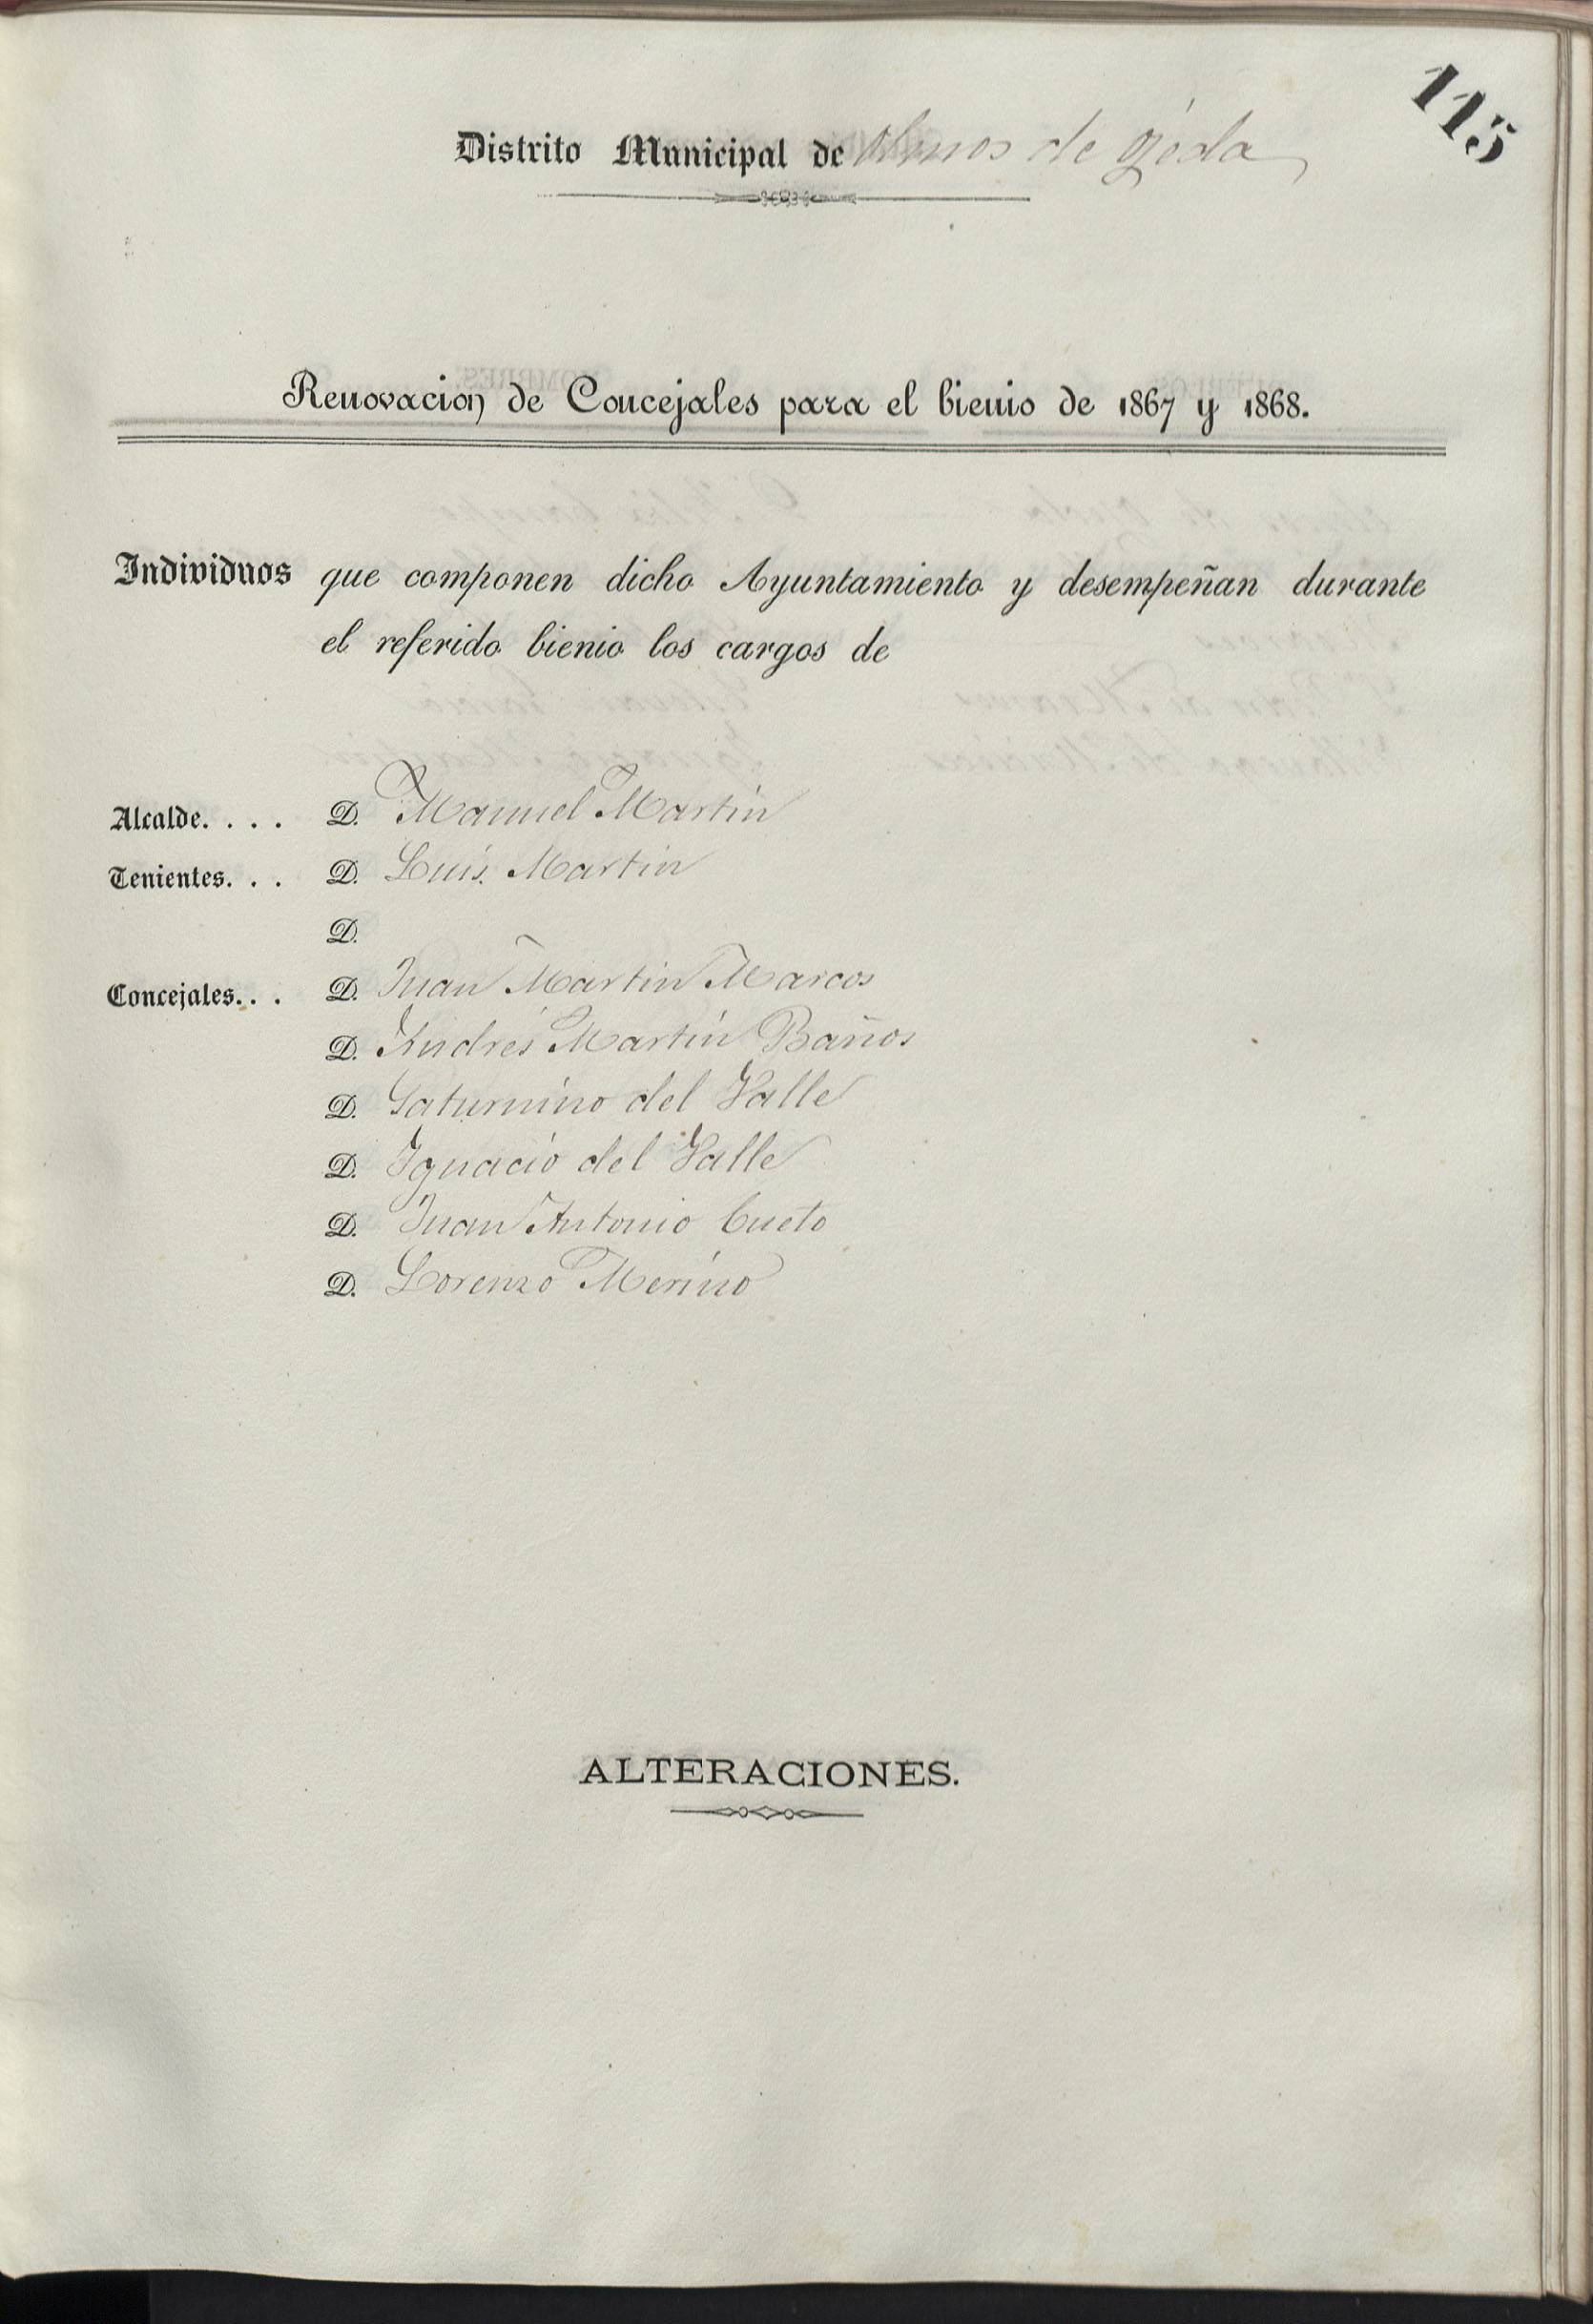 115
Distrito Municipal de Olmos de Ojeda
Renovacion de Concejales para el bienio de 1867 y 1868.
Individuos que componen dicho Ayuntamiento y desempeñan durante
el referido bienio los cargos de
Alcalde. . . . D. Manuel Martin
Tenientes. . . D. Luis Martin
D.
Concejales. . . D. Juan Martin Marcos
D. Andrés Martin Baños
D. Saturnino del Valle
D. Ignacio del Valle
D. Juan Antonio Cueto
D. Lorenzo Merino
ALTERACIONES.